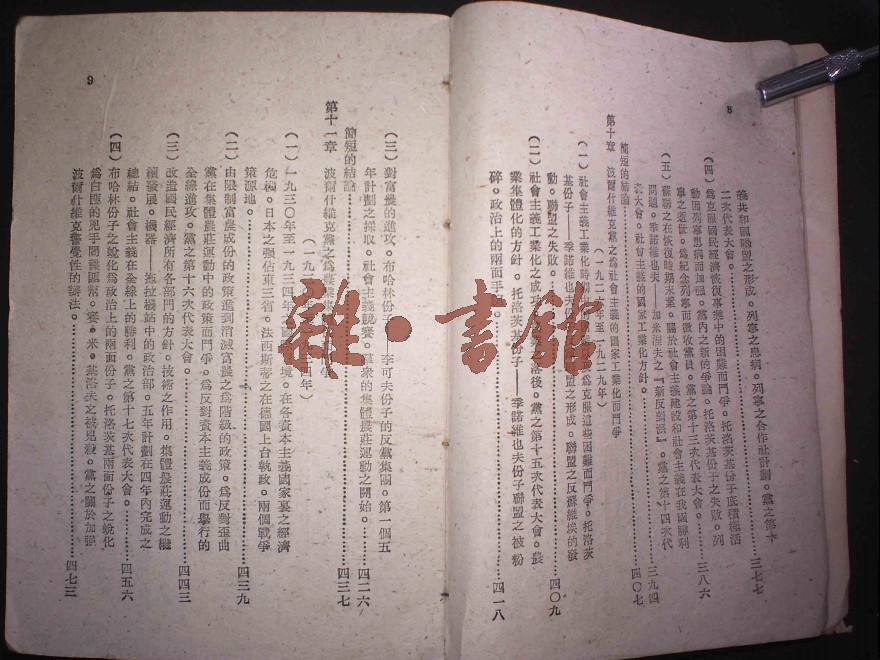 8
義共和國聯盟之形成。列寧之患病。列寧之合作社計劃。黨之第十
二次代表大會。……三七七
(四)爲克服國民經濟恢復事業中的困難而鬥爭。托洛茨基份子底積極活
動因列寧患病而加強。黨內之新的爭論。托洛茨基份子之失敗。列
寧之逝世。爲紀念列寧而徵收黨員。黨之第十三次代表大會。……三八六
(五)蘇聯之在恢復時期末葉。關於社會主義建設和社會主義在我國勝利
問題。季諾維也夫——加米涅夫之『新反對派』。黨之第十四次代
表大會。社會主義的國家工業化方針。……三九四
簡短的結論……四〇七
第十章 波爾什維克黨之爲社會主義的國家工業化而鬥爭
(一九二六年至一九二九年)
(一)社會主義工業化時 爲克服這些困難而鬥爭。托洛茨
基份子——季諾維也夫份 聯盟之形成。聯盟之反蘇維埃的發
動。聯盟之失敗。……四〇九
(二)社會主義工業化之成功。 落後。黨之第十五次代表大會。農
業集體化的方針。托洛茨基份子——季諾維也夫份子聯盟之被粉
碎。政治上的兩面手 ……四一八
9
(三)對富農的進攻。布哈林份子——李可夫份子的反黨集團。第一個五
年計劃之採取。社會主義競賽。羣衆的集體農莊運動之開始。……四二六
簡短的結論……四三七
第十一章 波爾什維克黨之爲農業集 爭
(一九三〇年 四年)
(一)一九三〇年至一九三四年 國 境。在各資本主義國家裏之經濟
危機。日本之强佔東三省。法西斯蒂之在德國上台執政。兩個戰爭
策源地。……四三九
(二)由限制富農成份的政策進到消滅富農之爲階級的政策。爲反對歪曲
黨在集體農莊運動中的政策而鬥爭。爲反對資本主義成份而舉行的
全線進攻。黨之第十六次代表大會。……四四三
(三)改造國民經濟所有各部門的方針。技術之作用。集體農莊運動之繼
續發展。機器——拖拉機站中的政治部。五年計劃在四年內完成之
總結。社會主義在全線上的勝利。黨之第十七次代表大會。……四五六
(四)布哈林份子之蛻化爲政治上的兩面份子。托洛茨基兩面份子之蛻化
爲白匪的兇手間諜匪幫。塞·米·基洛夫之被兇殺。黨之關於加强
波爾什維克警覺性的辦法。……四七三
雜·書館